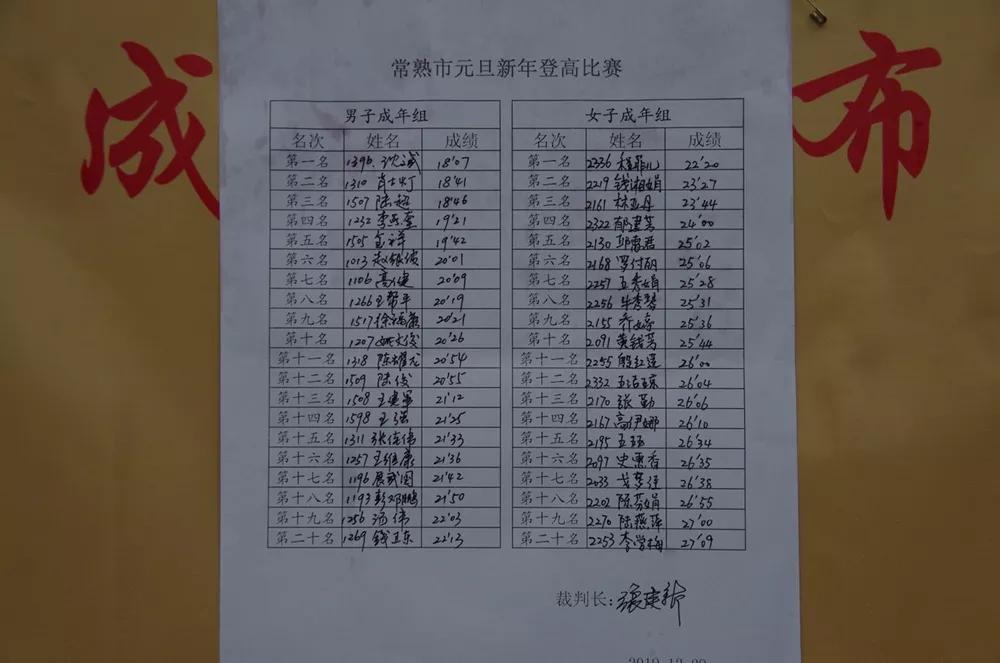 成
布
常熟市元旦新年登高比赛
男子成年组
名次 姓名 成绩
第一名 1396 沈诚 18'07
第二名 1310 肖士灯 18'41
第三名 1507 陆超 18'46
第四名 1232 19'21
第五名 1505 金祥 19'42
第六名 1013 赵张俊 20'01
第七名 1106 高健 20'09
第八名 1266 王帮平 20'19
第九名 1517 徐福康 20'21
第十名 1207 姚文俊 20'26
第十一名 1318 陈耀龙 20'54
第十二名 1509 陆俊 20'55
第十三名 1508 王建军 21'12
第十四名 1598 王强 21'25
第十五名 1311 张佳伟 21'33
第十六名 1257 王继康 21'36
第十七名 1196 展武国 21'42
第十八名 1193 彭邓鹏 21'50
第十九名 1256 汤伟 22'03
第二十名 1269 钱卫东 22'13
女子成年组
名次 姓名 成绩
第一名 2336 22'20
第二名 2219 钱湘娟 23'27
第三名 2161 林亚丹 23'44
第四名 2322 郁建芳 24'00
第五名 2130 邱惠君 25'02
第六名 2168 罗付丽 25'06
第七名 2257 王秀娟 25'28
第八名 2256 牛秀琴 25'31
第九名 2155 乔婷 25'36
第十名 2091 黄钱芳 25'44
第十一名 2255 殷红莲 26'00
第十二名 2332 26'04
第十三名 2170 张勤 26'06
第十四名 2167 高伊娜 26'10
第十五名 2195 王珏 26'34
第十六名 2097 史惠香 26'35
第十七名 2033 戈梦佳 26'38
第十八名 2202 陈芬娟 26'55
第十九名 2270 陆燕萍 27'00
第二十名 2253 李学梅 27'09
裁判长：张建新